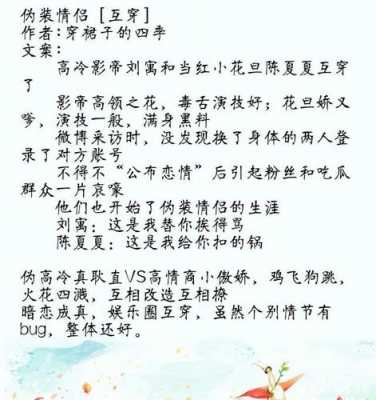 伪装情侣［互穿］
作者:穿裙子的四季
文案:
高冷影帝刘寓和当红小花旦陈夏夏互穿
了
影帝高领之花，毒舌演技好；花旦娇又
嗲，演技一般，满身黑料
微博采访时，没发现换了身体的两人登
录了对方账号
不得不“公布恋情”后引起粉丝和吃瓜
群众一片哀嚎
他们也开始了伪装情侣的生涯
刘寓：这是我替你挨得骂
陈夏夏：这是我给你扣的锅
伪高冷真耿直VS高情商小傲娇，鸡飞狗跳，
火花四溅，互相改造互相撩
暗恋成真，娱乐圈互穿，虽然个别情节有
bug，整体还好。